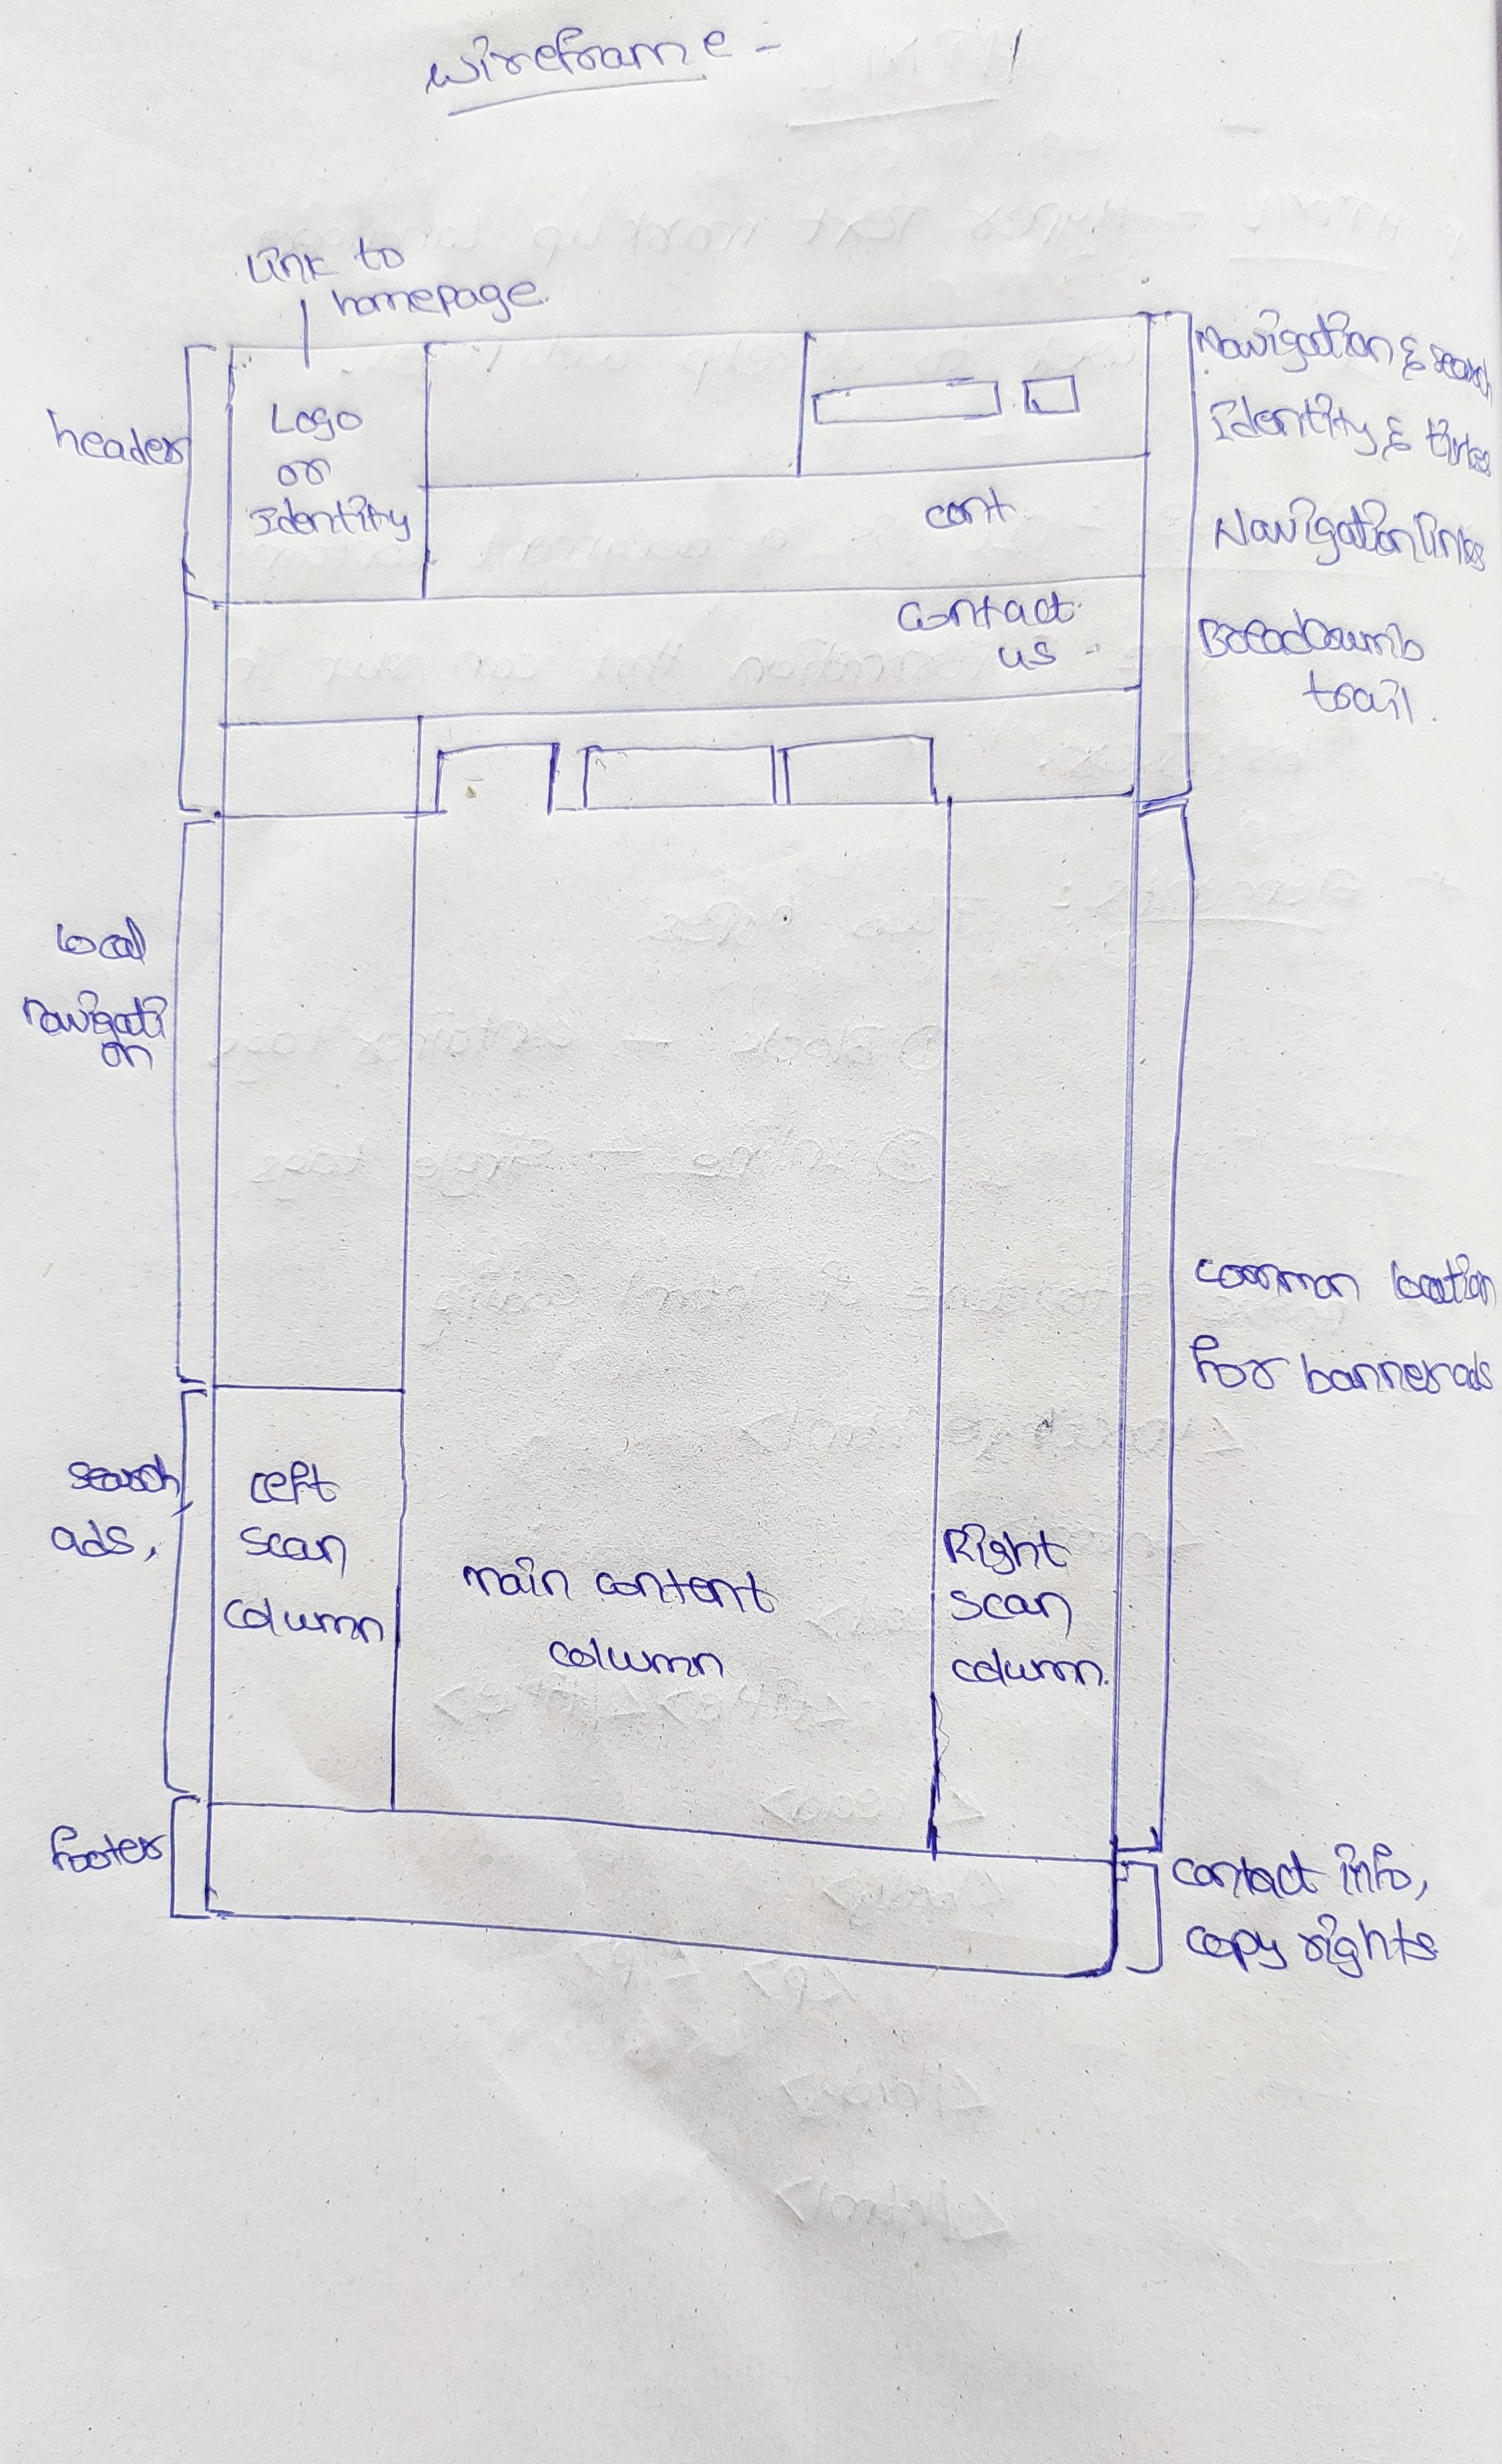 wireframe -
Link to
homepage.
header
Logo
or
Identity
Navigation & search
Identity &
cart
Navigation links
contact
us
trail.
local
navigati
on
common location
for banner ads
search
ads,
Left
scan
column
main content
column
Right
scan
column.
footer
contact info,
copy rights